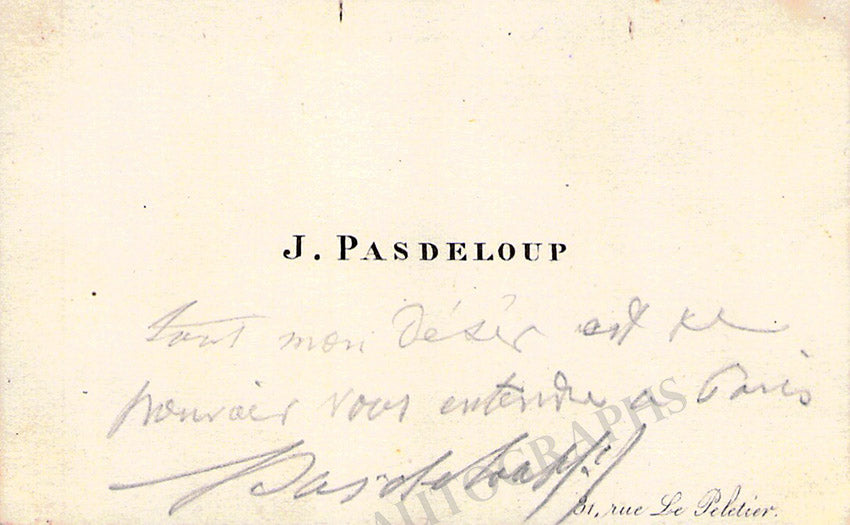 J. PASDELOUP
tout mon désir est de
pouvoir vous entendre a Paris
Pasdeloup
AUTOGRAPHS
rue Le Peletier.